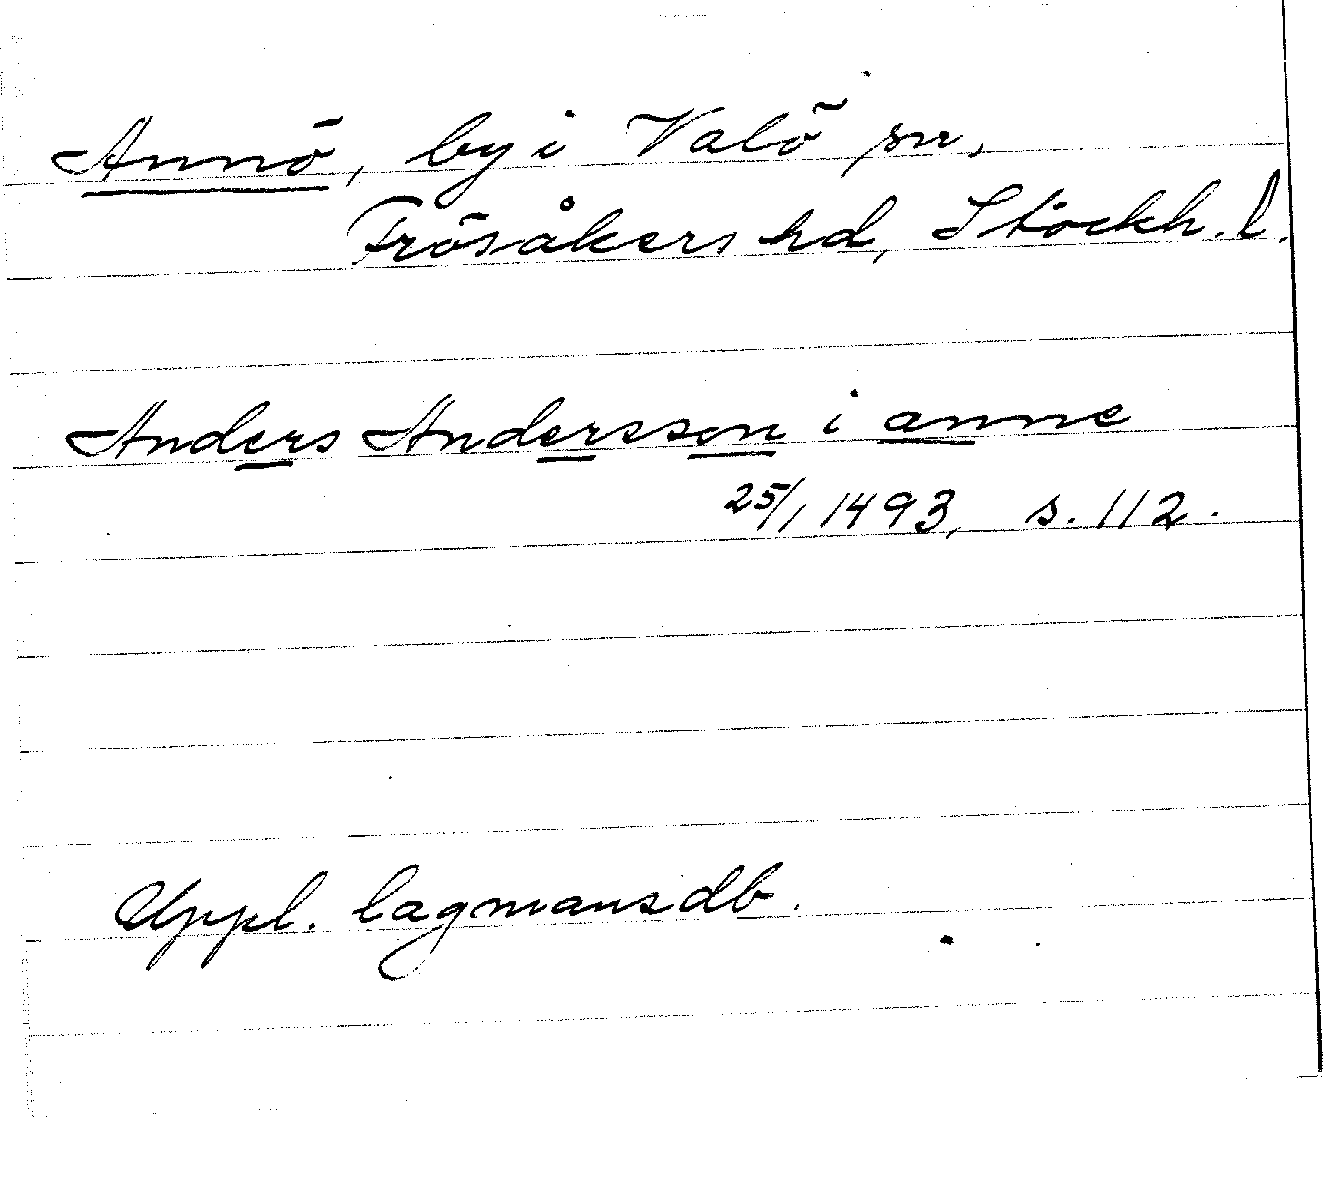 Annö, by i Valö sn,
Frösåkers hd, Stockh. l.
Anders Andersson i anne
25/1 1493, s. 112.
Uppl. lagmansdb.